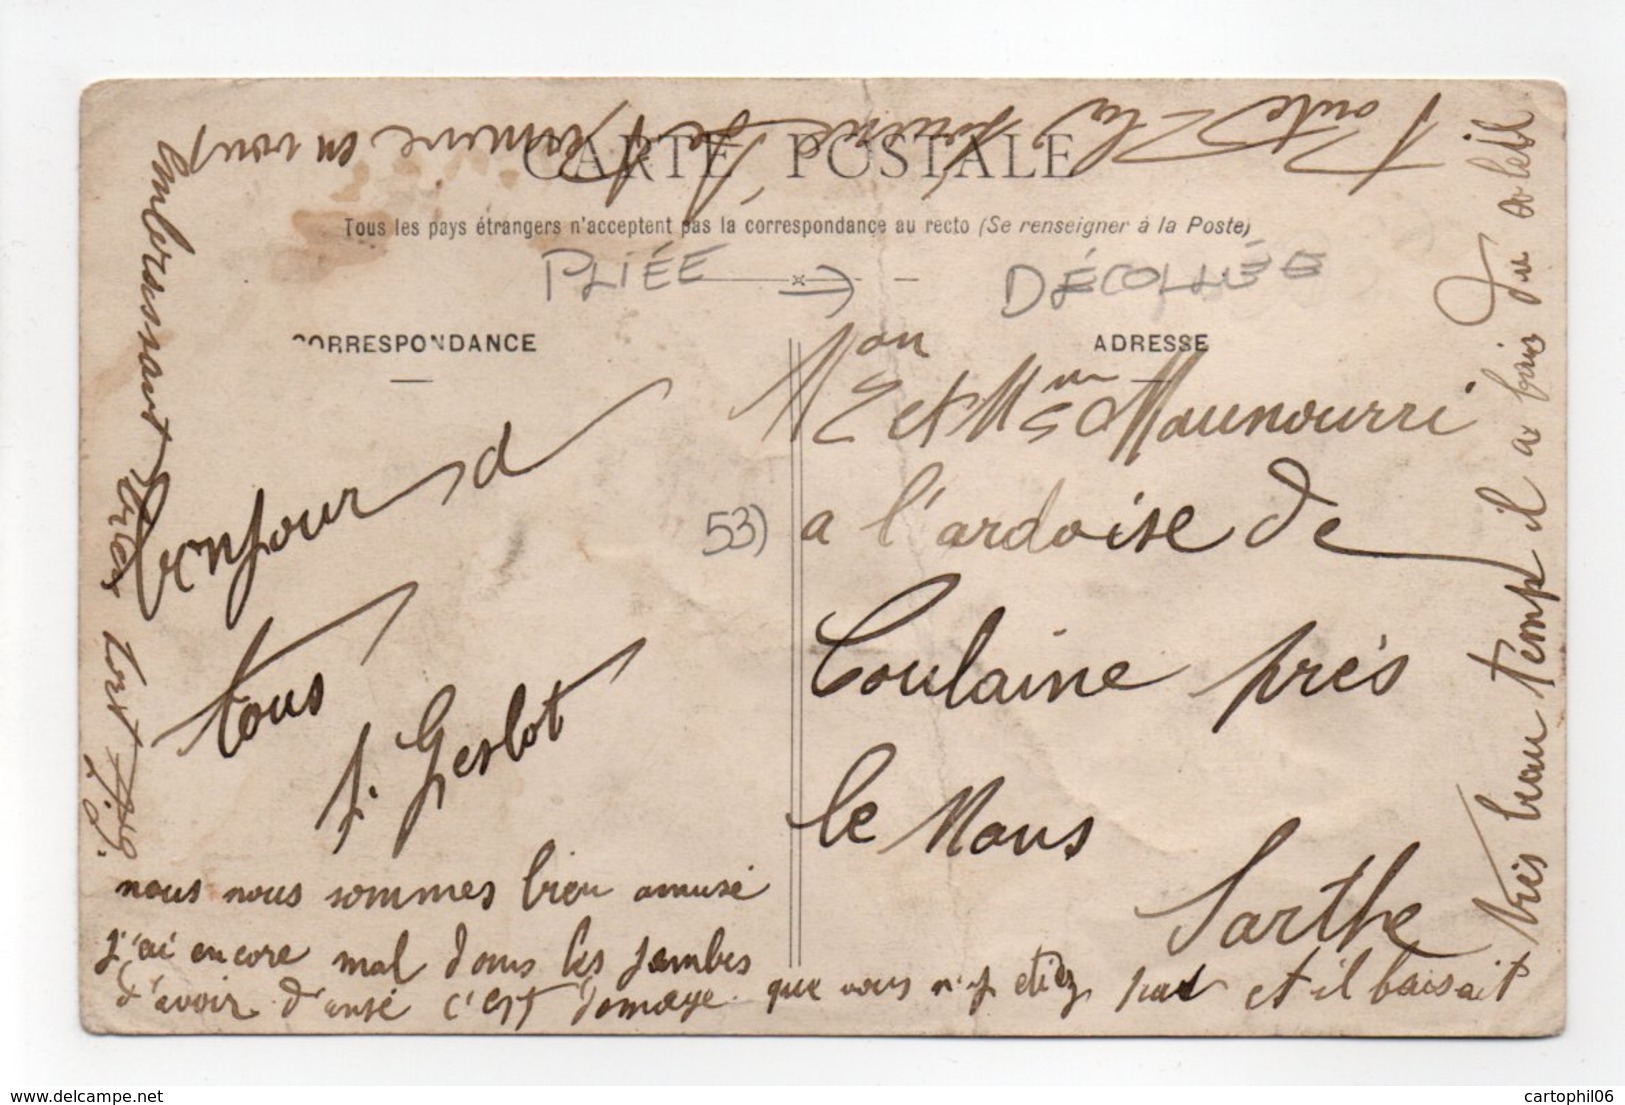 CARTE POSTALE
Tous les pays étrangers n'acceptent pas la correspondance au recto (Se renseigner à la Poste)
PLIÉE → DÉCOLLÉE
CORRESPONDANCE
ADRESSE
bonjour a
tous
J. Gerbot
53)
Mon
et Mme Maunourri
a l'ardoise de
Coulaine près
le Mans
Sarthe
nous nous sommes bien amusé
j'ai encore mal dans les jambes
d'avoir d'ansé c'est domage que vous n'y étiez pas et il faisait
très beau temp il a fais du soleil
Toute la
termine en vous
embrassant
bien fort
J.G.
cartophil06
delcampe.net